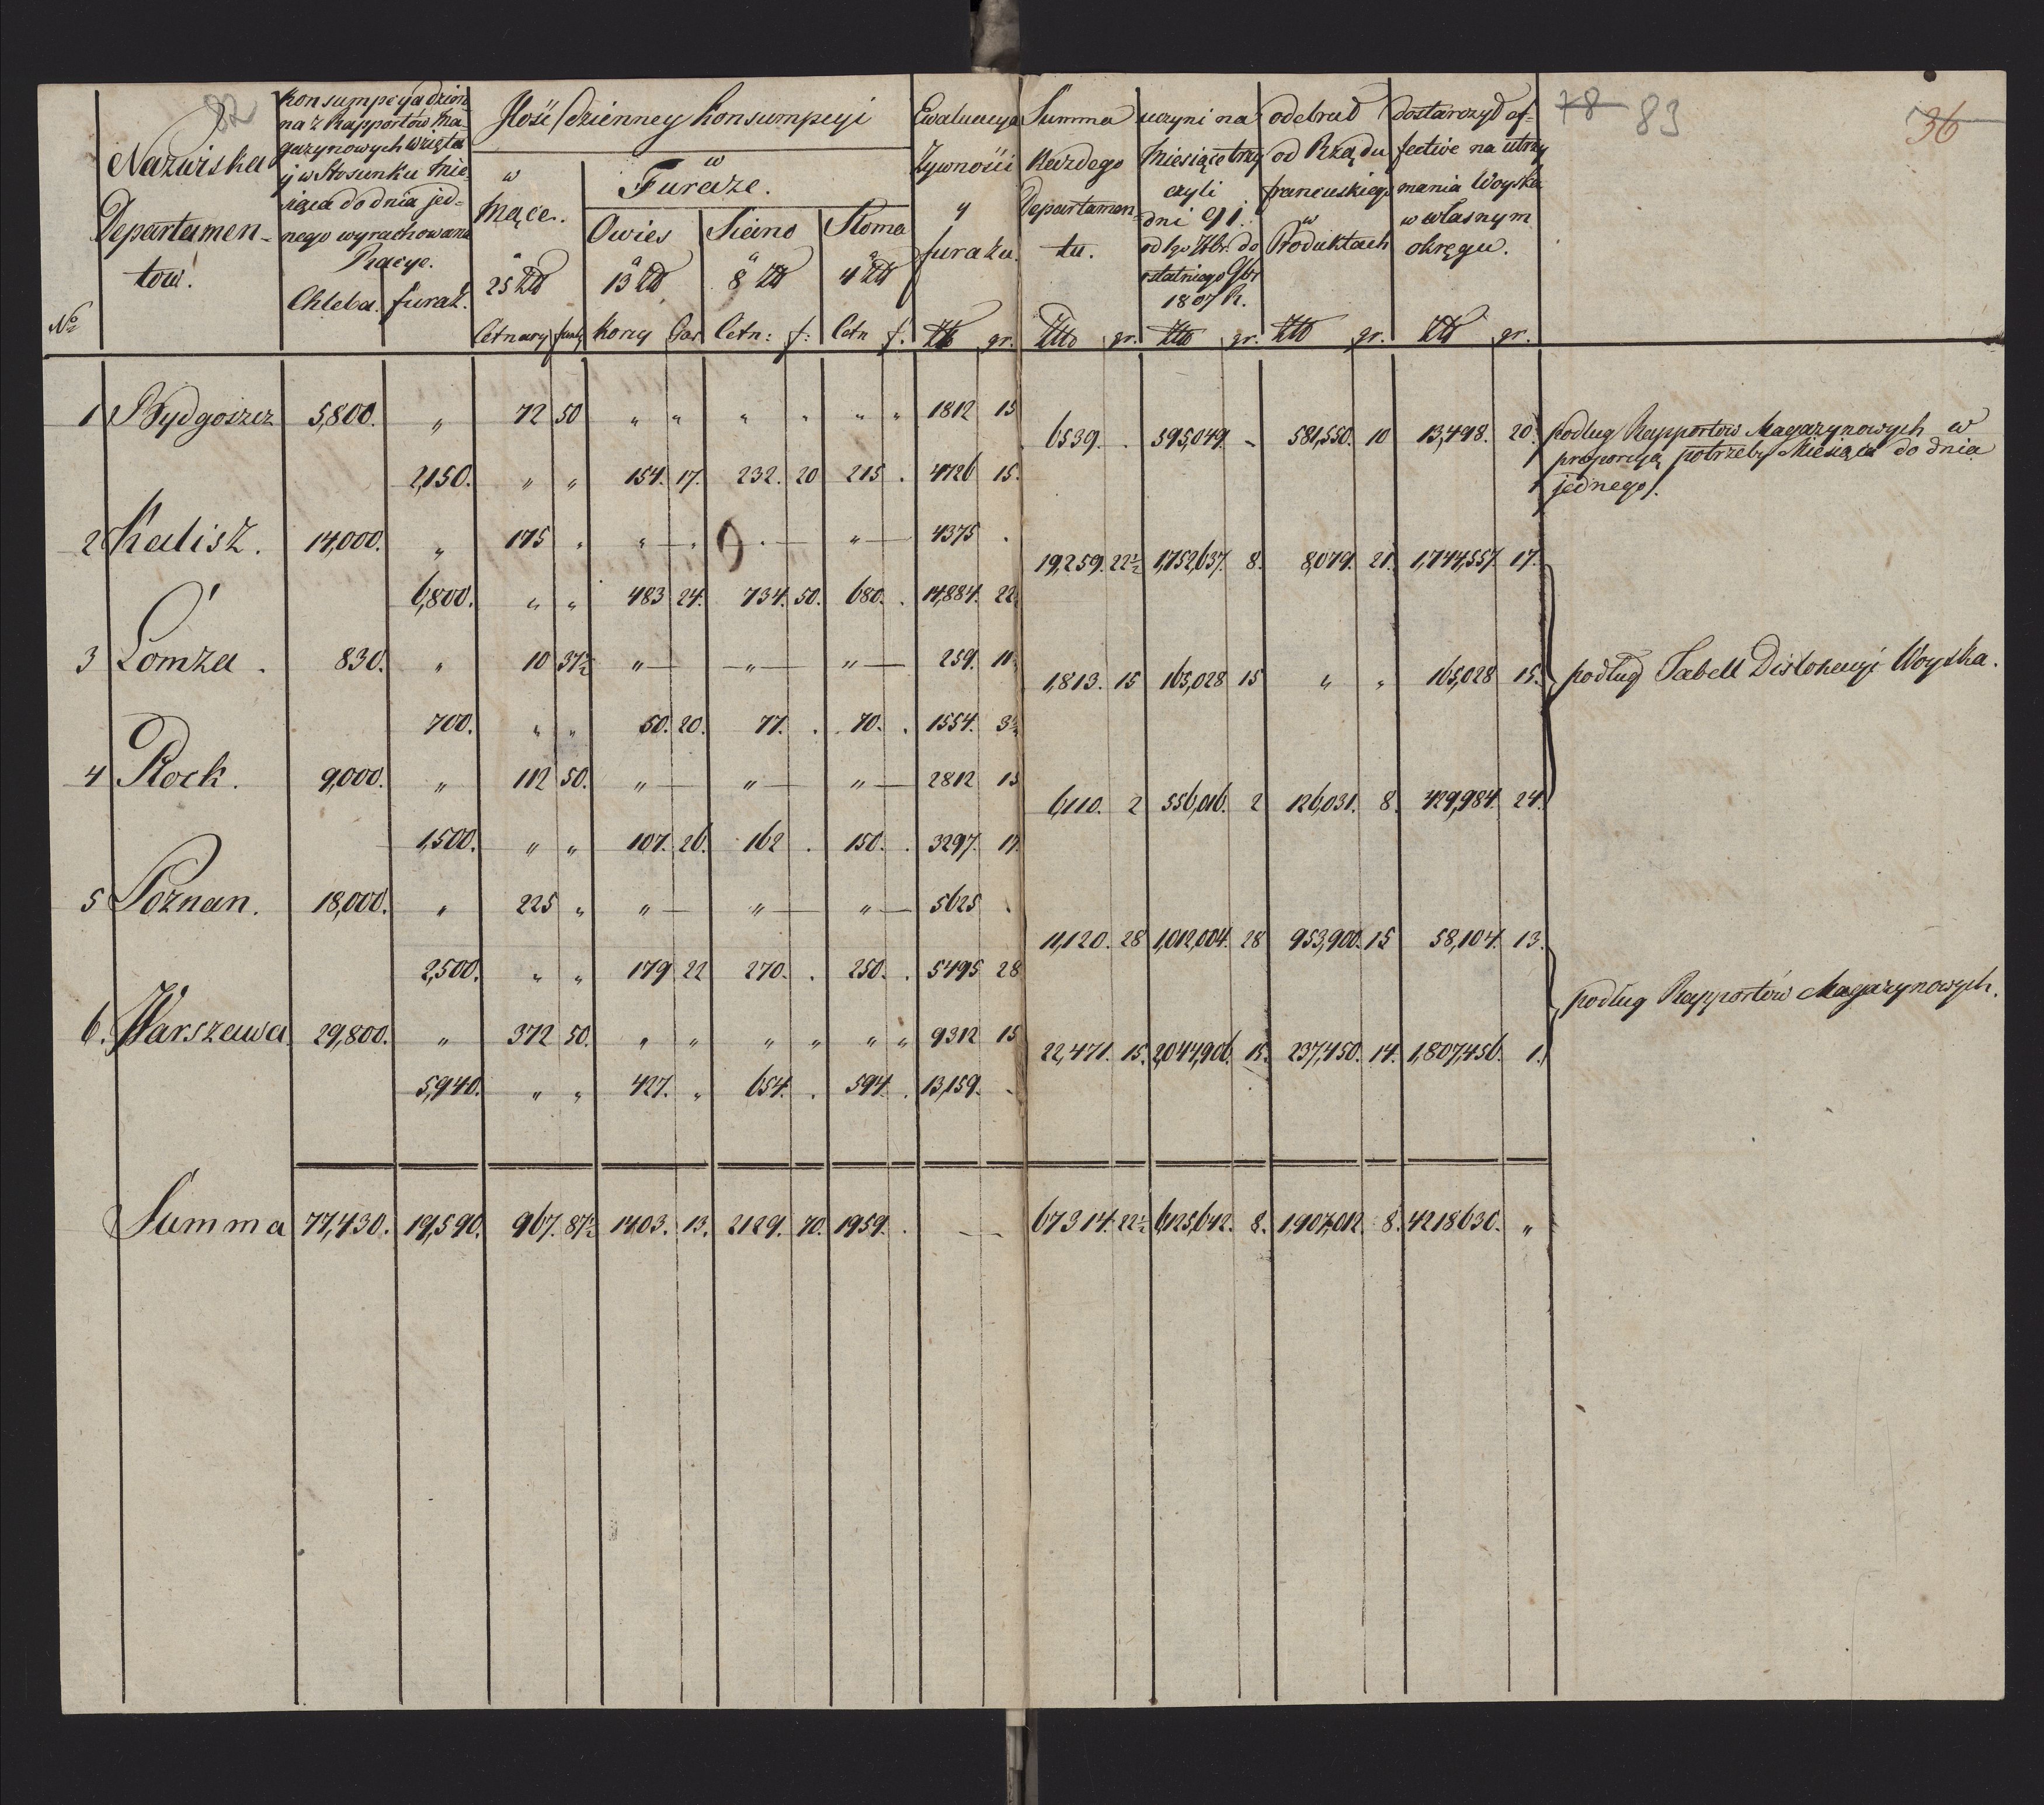 82
78 83
36
Nazwiska
Departamen-
tow.
Nº
Konsumpcya dzien
na z Rapportow Ma-
gazynowych wzięta
y w Stosunku Mie-
siąca do dnia jed-
nego wyrachowana
Racye.
Chleba. furaż.
Ilość dzienney Konsumpcyi
w
Mące.
à
25 Złł
Cetnary funty
w
Furaże.
Owies Siano Słoma
à à à
13 Złł 8 Złł 4 Złł
Korcy Gar Cetn: f: Cetn f.
Ewaluacya
Zywności
y
furażu.
Złł gr.
Summa
Każdego
Departamen-
tu.
Złł gr.
uczyni na
Miesiące trzy
czyli
dni 91.
od 1go 7br. do
ostatniego 9br
1807 R.
Złł gr.
odebrał
od Rządu
francuskiego
w
Produktach
Złł gr.
dostarczył ef-
fective na utrzy
mania Woyska
w własnym
okręgu.
Złł gr.
1 Bydgoszcz 5,800. " 72 50 " " " " " " 1812 15
6539. . 595,049. - 581,550. 10 13,498. 20.
podług Rapportow Magazynowych w
proporcyą potrzeby Miesiąca do dnia
jednego.
2,150. " " 154. 17. 232. 20 215 . 4726 15.
2 Kalisz. 14,000. " 175 " " — " — " — 4375 .
19,259. 22½ 1,752,637. 8. 8,079. 21. 1,744,557. 17.
6,800. " " 483 24. 734. 50. 680. . 14,884. 22½
3 Łomża. 830. " 10 37½ " — " — " — 259. 11½
1,813. 15 165,028 15 " " 165,028 15.
podług Tabell Dislokacyi Woyska.
700. " " 50. 20. 77. . 70. . 1554. 3½
4 Płock. 9,000. " 112 50. " — " — " — 2812 15
6,110. 2 556,016. 2 126,031. 8. 429,984. 24.
1,500. " " 107. 26. 162 . 150. . 3297. 17.
5 Poznan. 18,000. " 225 " " — " — " — 5625 .
11,120. 28 1,012,004. 28 953,900. 15 58,104. 13.
2,500. " " 179 22 270. . 250. . 5495 28
podług Rapportów Magazynowych.
6. Warszawa 29,800. " 372 50. " " " " " " 9312 15
22,471. 15. 2,044,906. 15. 237,450. 14. 1,807,456. 1.
5,940. " " 427. " 654. . 594. . 13,159. -
Summa 77,430. 19,590. 967. 87½ 1403. 13. 2129. 70. 1959. . — 67314. 22½ 6,125,642. 8. 1,907,012. 8. 4218630. "